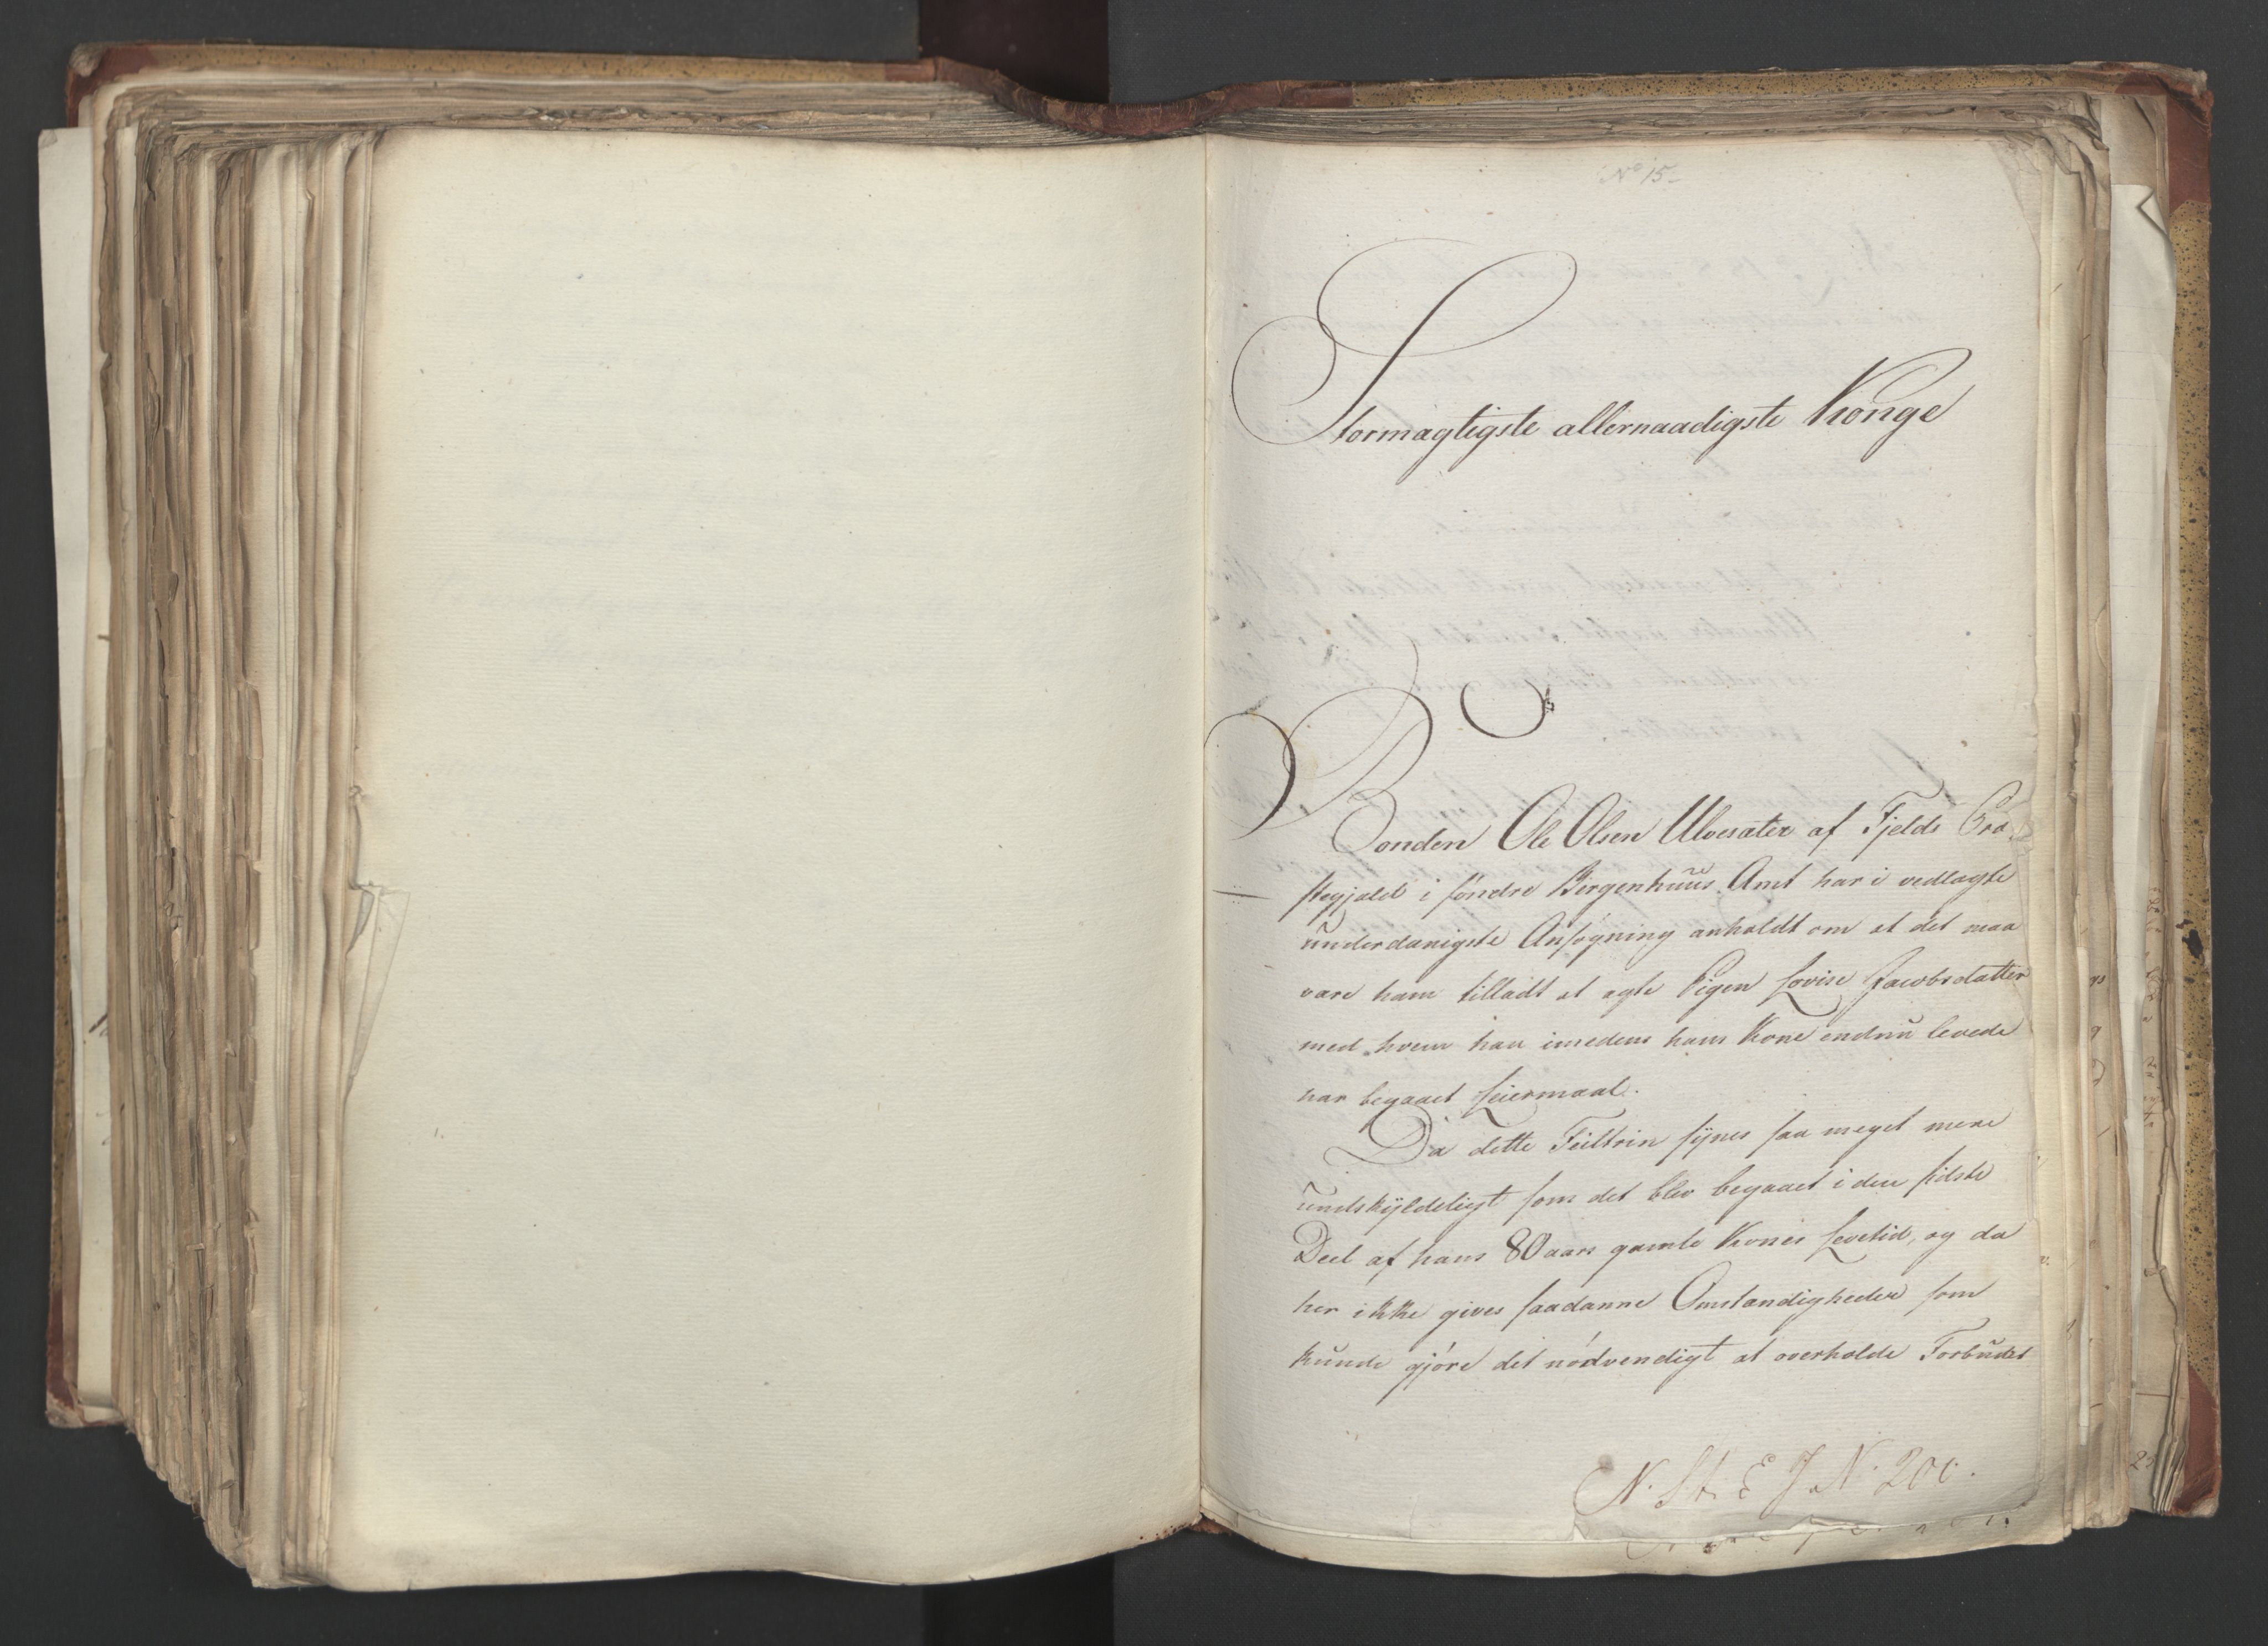 No 15
Stormægtigste allernaadigste Konge
Bonden Ole Olsen Ulvesæter af Fjelds Præ-
stegjæld i søndre Bergenhuus Amt har i vedlagte
underdanigste Ansøgning anholdt om at det maa
være ham tilladt at ægte Pigen Lovise Jacobsdatter
med hvem han imedens hans Kone endnu levede
har begaaet Leiermaal.
Da dette Feiltrin synes saa meget mere
undskyldeligt som det blev begaaet i den sidste
Deel af hans 80 aars gamle Kones Levetid, og da
her ikke gives saadanne Omstændigheder som
kunde gjøre det nødvendigt at overholde Forbudet
N. St. E J. N. 200.